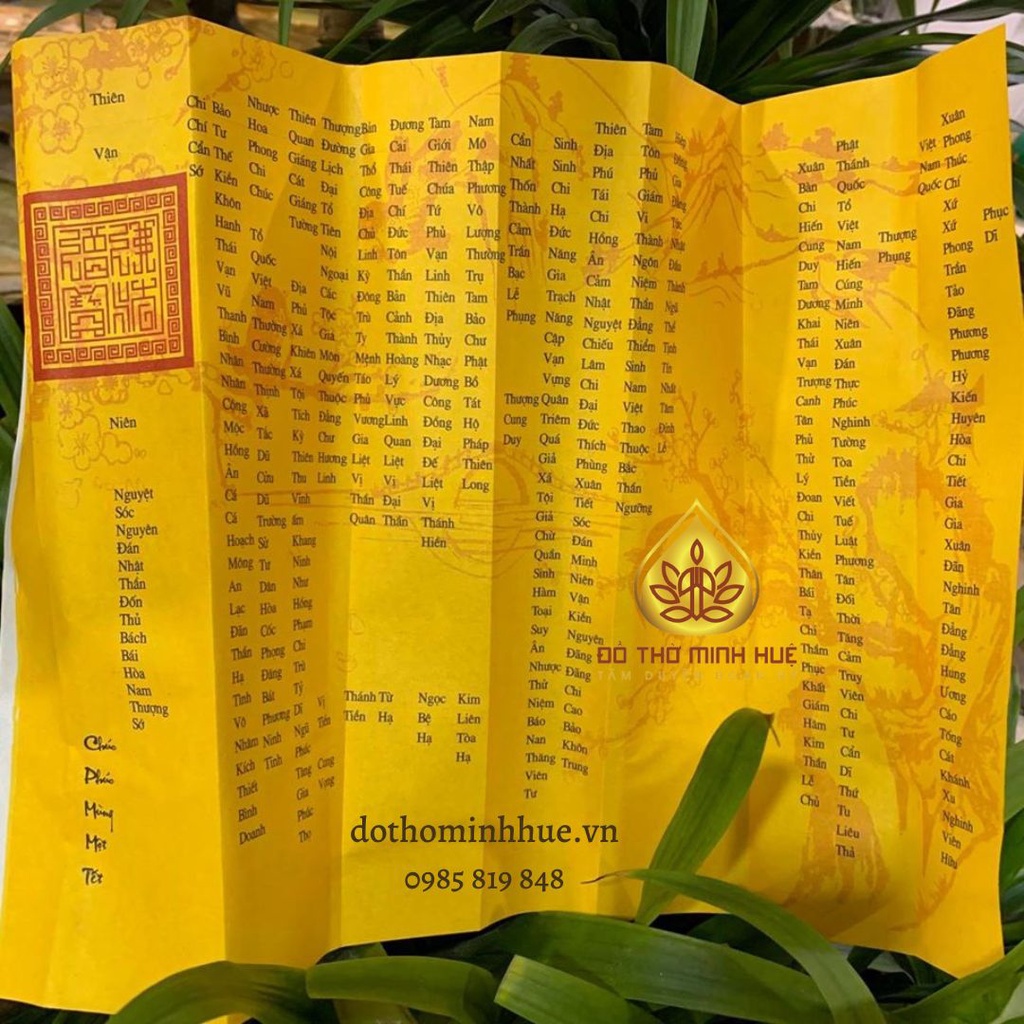 Phục Dĩ
Xuân Phong Thúc Chí Xứ Xứ Phong Trần Tảo Đăng Phương Phương Hỷ Kiến Huyên Hòa Chi Tiết Gia Gia Xuân Đãn Nghinh Tân Đẳng Đẳng Hung Ương Cáo Tống Cát Khánh Xu Nghinh Viên Hữu
Việt Nam Quốc
Thượng Phụng
Phật Thánh Quốc Tổ Việt Nam Hiến Cúng Minh Niên Xuân Đán Thực Phúc Nghinh Tường Tòa Tiền Viết Tuế Luật Phương Tân Đối Thời Tăng Cảm Truy Viên Chi Tư Cẩn Dĩ Thứ Tu Liêu Thả
Xuân Bàn Chi Hiến Cung Duy Tam Dương Khai Thái Vạn Trượng Canh Tân Phủ Lý Đoan Chi Thủy Kiền Thân Bái Tạ Chi Thẩm Phục Khất Giám Hâm Kim Thần Lễ Chủ
Động Gia Đẳng Tức Nhất Đẩu Thành Ngũ Thể Tịnh Tín Nhất Tâm Đỉnh Lễ
Tâm Tôn Phủ Giám Vị Thành Ngôn Niệm Thần Đẳng Thiểm Sinh Nam Việt Thao Thuộc Bắc Thần Ngưỡng
Thiên Địa Phú Tái Chi Hồng Ân Cảm Nhật Nguyệt Chiếu Lâm Chi Đại Đức Thích Phùng Xuân Tiết Sóc Đán Minh Niên Vận Kiến Nguyên Đăng Chi Cao Bảo Khôn Trung
Sinh Sinh Chi Hạ Đức Năng Gia Trạch Năng Cập Vạn Vựng Quân Triêm Quá Giả Xá Tội Giả Chử Quẩn Sinh Hàm Toại Suy Ân Nhược Thử Niệm Báo Nan Thăng Viên Tư
Cẩn Nhất Thốn Thành Cảm Trần Bạc Lễ Phụng
Thượng Cung Duy
Nam Mô Thập Phương Vô Lượng Thường Trụ Tam Bảo Chư Phật Bồ Tát Hộ Pháp Thiên Long
Kim Liên Tòa Hạ
Tam Giới Thiên Chúa Tứ Phủ Vạn Linh Thiên Địa Thủy Nhạc Dương Công Đồng Đại Đế Liệt Vị Thánh Hiền
Ngọc Bệ Hạ
Đương Cai Thái Tuế Chí Đức Tôn Thần Bản Cảnh Thành Hoàng Lý Vực Linh Quan Liệt Vị Đại Thần
Từ Hạ
Bản Gia Thổ Công Địa Chủ Linh Kỳ Đông Trù Ty Mệnh Táo Phủ Vương Gia Liệt Vị Thần Quân
Thánh Tiền
Thượng Đường Lịch Đại Tổ Tiên Nội Ngoại Các Tộc Giả Môn Quyến Thuộc Đẳng Chư Hương Linh
Vị Tiền
Cung Vọng
Thiên Quan Giáng Cát Giáng Tường
Địa Phủ Xá Khiên Xá Tội Tích Kỳ Thiên Thu Vĩnh ấm Khang Ninh Như Hồng Phạm Chi Trù Tý Dĩ Ngũ Phúc Tăng Gia Phúc Thọ
Nhược Hoa Phong Chi Chúc
Tổ Quốc Việt Nam Thường Cường Thường Thịnh Xã Tắc Dũ Cửu Dũ Trường Sử Tư Dân Hòa Cốc Phong Đăng Bát Phương Ninh Tĩnh
Bảo Tư Thế Kiền Khôn Hanh Thái Vạn Vũ Thanh Bình Nhân Nhân Cộng Mộc Hồng Ân Cá Cá Hoạch Mông An Lạc Đãn Thần Hạ Tình Vô Nhâm Kích Thiết Bình Doanh
Chi Chí Cẩn Sớ
Thiên Vận
Niên
Nguyệt Sóc Nguyên Đán Nhật Thần Đốn Thủ Bách Bái Hòa Nam Thượng Sớ
Chúc Phúc Mừng Một Tết
ĐỒ THỜ MINH HUỆ
dothominhhue.vn
0985 819 848